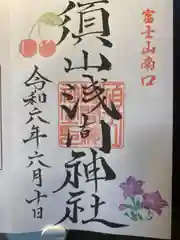 富士山南口
須山浅間神社
令和六年六月十日